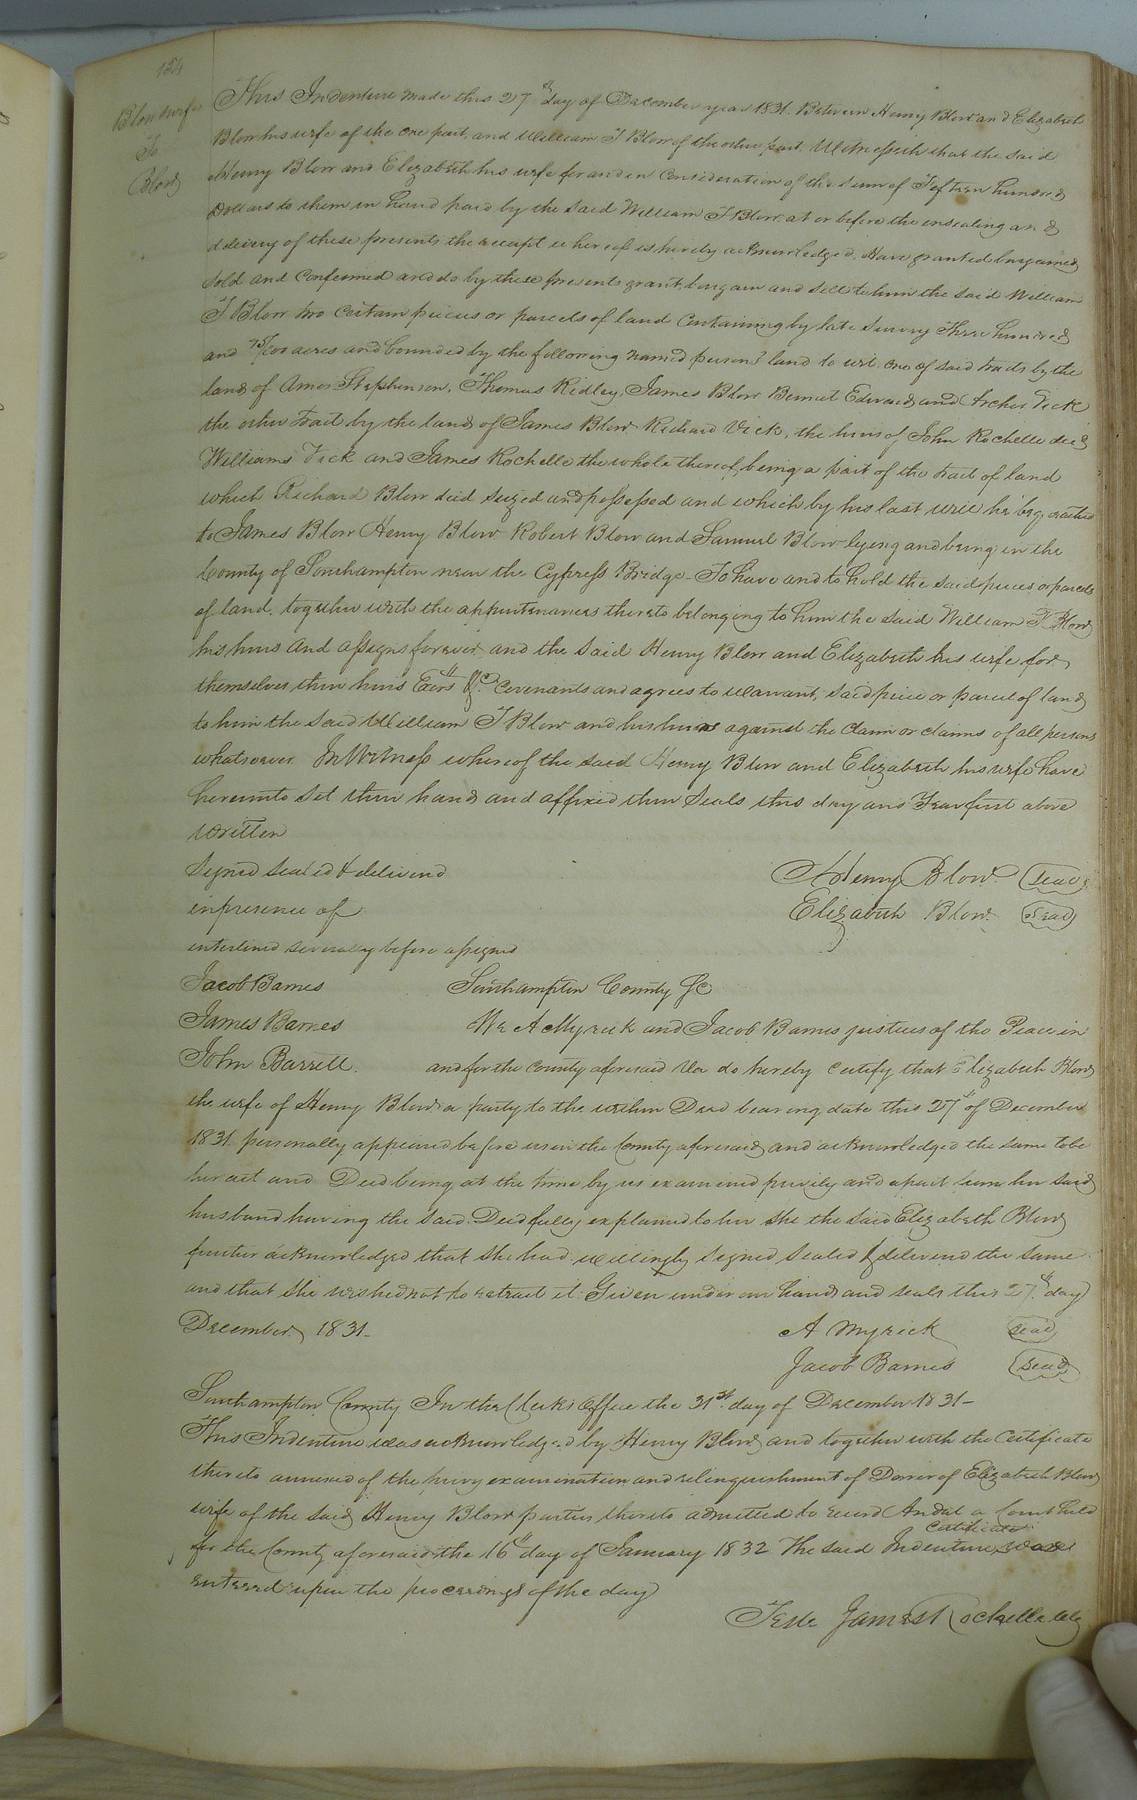 154
Blow & wife
To
Blow
This Indenture made this 27th day of December year 1831. Between Henry Blow and Elizabeth
Blow his wife of the one part, and William T Blow of the other part. Witnesseth that the said
Henry Blow and Elizabeth his wife for and in Consideration of the sum of Fifteen hundred
Dollars to them in hand paid by the said William T Blow at or before the ensealing and
delivery of these presents the receipt whereof is hereby acknowledged. Have granted bargained
sold and Confirmed and do by these presents grant bargain and sell to him the said William
T Blow two Certain pieces or parcels of land Containing by late Survey Three hundred
and 75/100 acres and bounded by the following named persons land to wit. one of said tracts by the
lands of Amos Stephenson, Thomas Ridley, James Blow Edwards and Archer Vick
the other tract by the lands of James Blow Richard Vick, the heirs of John Rochelle decd
Williams Vick and James Rochelle the whole thereof being a part of the tract of land
which Richard Blow died seized and possessed and which by his last will he bequeathed
to James Blow Henry Blow Robert Blow and Samuel Blow lying and being in the
County of Southampton near the Cypress Bridge - To have and to hold the said pieces or parcels
of land, together with the appurtenances thereto belonging to him the said William T Blow
his heirs and assigns forever and the said Henry Blow and Elizabeth his wife for
themselves their heirs Exrs &c. Covenants and agrees to warrant, said piece or parcel of land
to him the said William T Blow and his heirs against the Claim or claims of all persons
whatsoever In Witness whereof the said Henry Blow and Elizabeth his wife have
hereunto set their hands and affixed their Seals this day and Year first above
written
Signed sealed & delivered
Henry Blow (seal)
in presence of
Elizabeth Blow (Seal)
interlined severally before assigned
Jacob Barnes
Southampton County Sc
James Barnes
We A Myrick and Jacob Barnes justices of the Peace in
John Barrett.
and for the County aforesaid We do hereby Certify that Elizabeth Blow
the wife of Henry Blow a party to the within Deed bearing date this 27th of December
1831. personally appeared before us in the County aforesaid and acknowledged the same to be
her act and Deed being at the time by us examined privily and apart from her said
husband having the said Deed fully explained to her she the said Elizabeth Blow
further acknowledged that she had willingly signed sealed & delivered the same
and that she wished not to retract it. Given under our hands and seals this 27th day
December 1831 -
A Myrick (seal)
Jacob Barnes (seal)
Southampton County In the Clerks Office the 31st. day of December 1831 -
This Indenture was acknowledged by Henry Blow and together with the Certificate
thereto annexed of the privy examination and relinquishment of Dower of Elizabeth Blow
wife of the said Henry Blow parties thereto admitted to record And at a Court held
for the County aforesaid the 16th day of January 1832 The said Indenture Certificate was
entered upon the proceedings of the day
Teste James Rochelle Clk